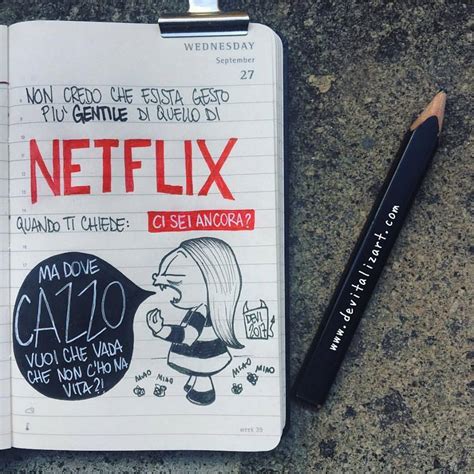 WEDNESDAY
September
27
NON CREDO CHE ESISTA GESTO
PIU' GENTILE DI QUELLO DI
NETFLIX
QUANDO TI CHIEDE: CI SEI ANCORA?
MA DOVE
CAZZO
VUOI CHE VADA
CHE NON C'HO NA
VITA?!
DEVI
2017
MIAO MIAO
MIAO MIAO
week 39
www.devitalizart.com